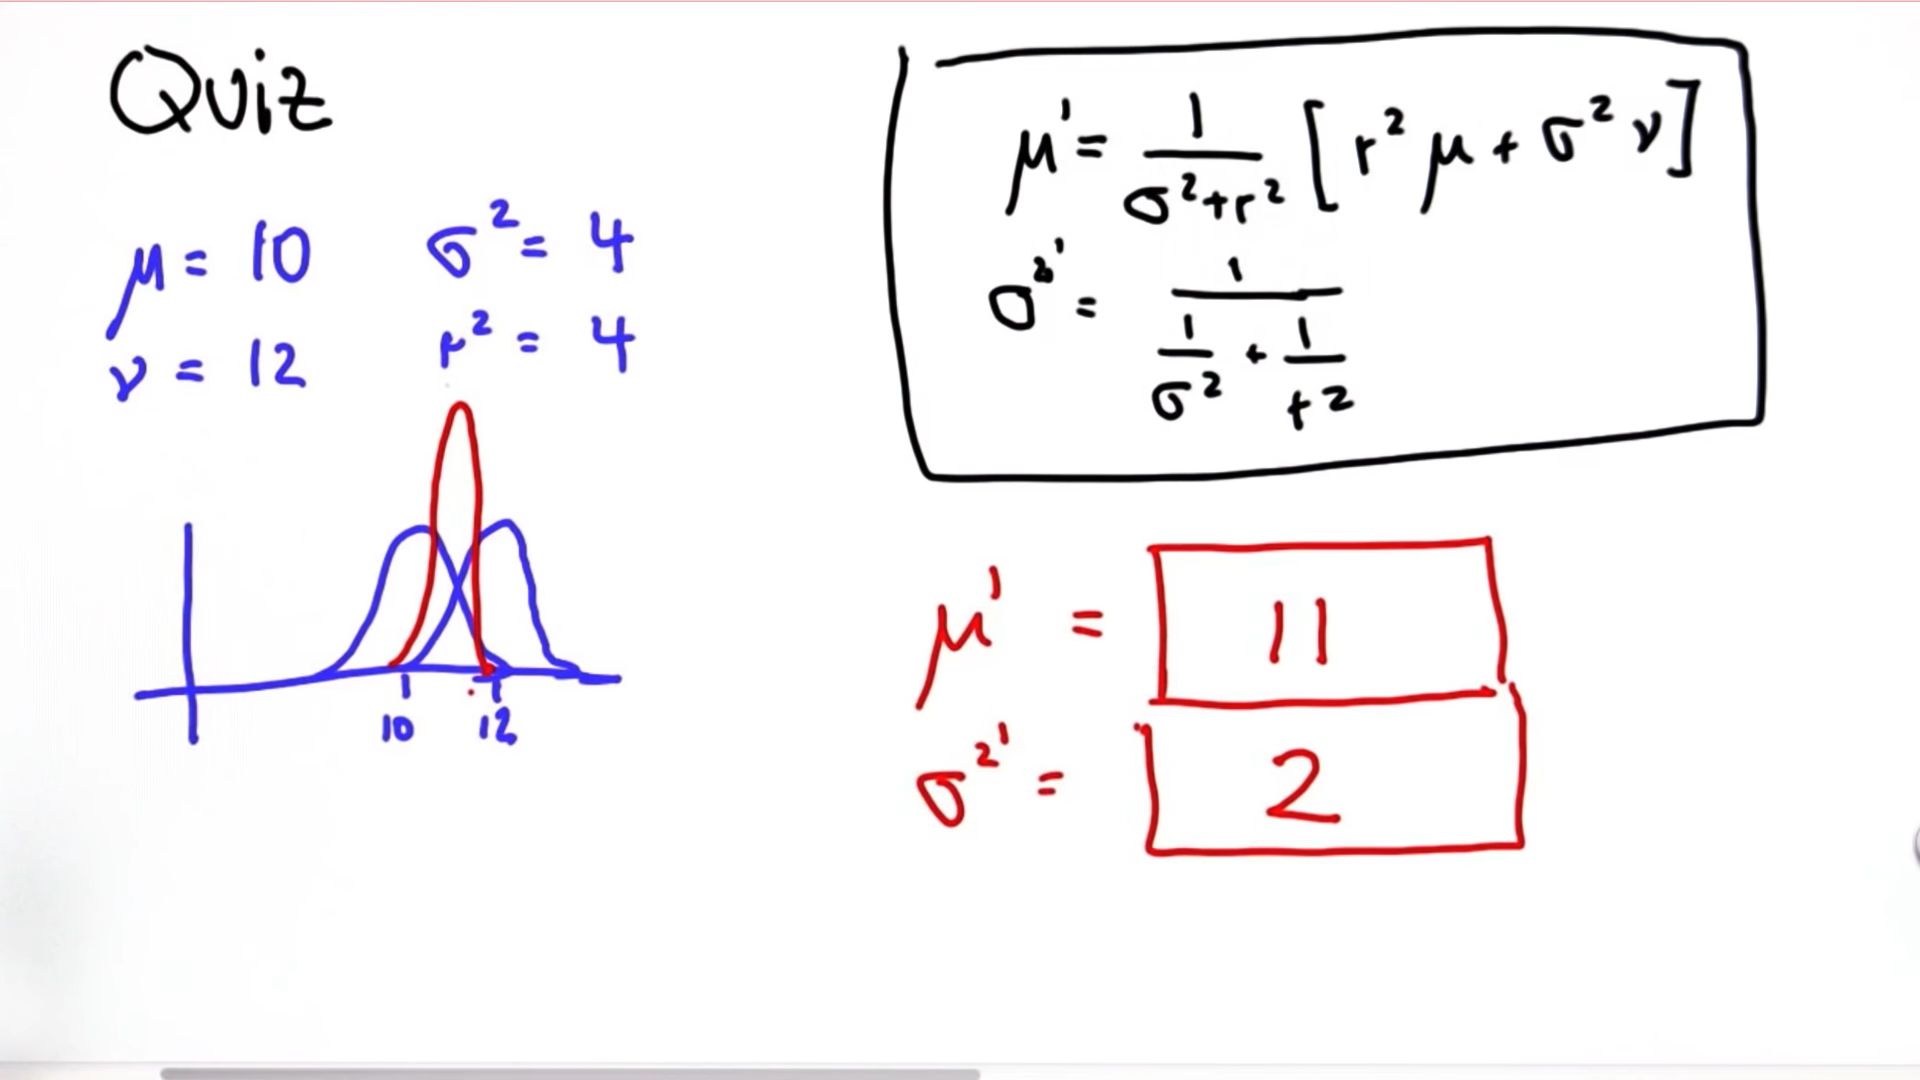 Quiz
μ = 10 σ² = 4
ν = 12 r² = 4
μ' = 1/(σ²+r²) [r²μ + σ²ν]
σ²' = 1/(1/σ² + 1/r²)
10 12
μ' = 11
σ²' = 2